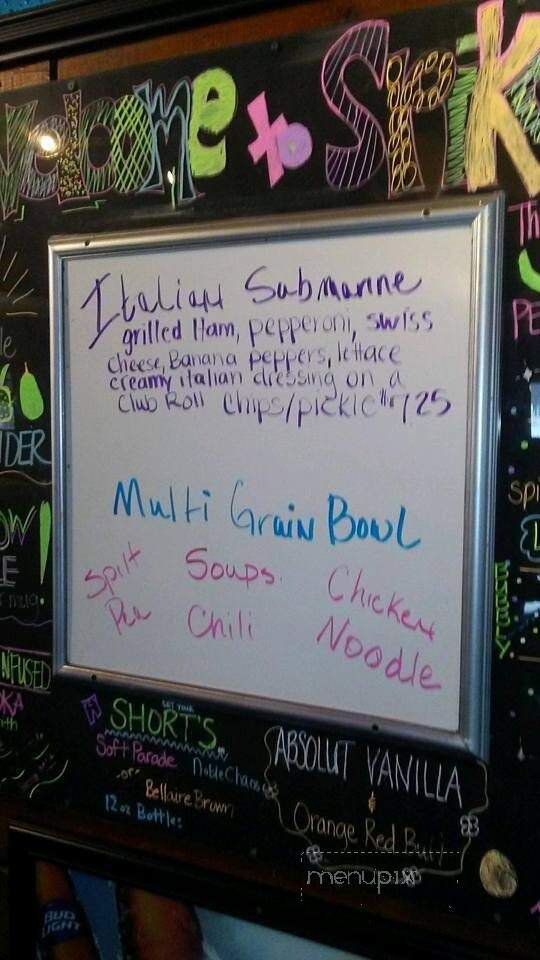 Welcome to Spik
Italian Submarine
grilled Ham, pepperoni, swiss
cheese, Banana peppers, lettace
creamy italian dressing on a
Club Roll Chips/pickle $7 25
Multi Grain Bowl
Split Pea
Soups.
Chili
Chicken Noodle
DER
NFUSED
KA
Th
PE
Spi
GET YOUR
SHORT'S
Soft Parade Noble Chaos
-or-
Bellaire Brown
12oz Bottle:
ABSOLUT VANILLA
&
Orange Red Bull
menupix
BUD
LIGHT